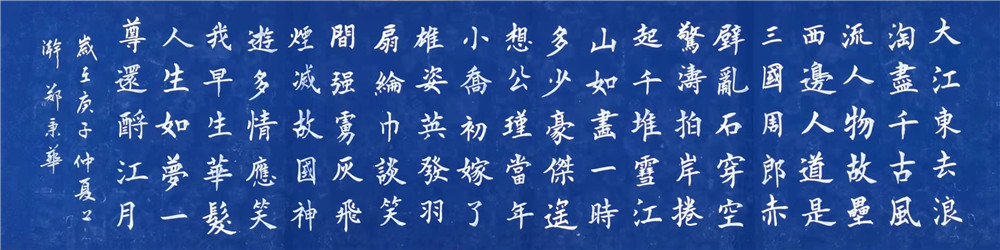 大江東去浪
淘盡千古風
流人物故壘
西邊人道是
三國周郎赤
壁亂石穿空
驚濤拍岸捲
起千堆雪江
山如畫一時
多少豪傑遥
想公瑾當年
小喬初嫁了
雄姿英發羽
扇綸巾談笑
間强虜灰飛
煙滅故國神
遊多情應笑
我早生華髮
人生如夢一
尊還酹江月
歲在庚子仲夏上
澣 鄭秉華